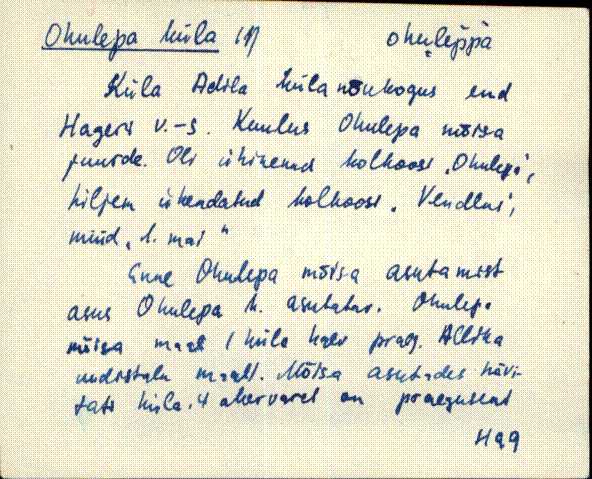 Ohulepa küla ohuleppa
Küla Adila küla nõukogus end
Hageri v.-s. Kuulus Ohulepa mõisa
juurde. Oli ühinenud kolhoosi „Ohulepa",
hiljem ühendatud kolhoosi „Vendlus",
nüüd „1. mai"
Enne Ohulepa mõisa asutamist
asus Ohulepa k. asutatav. Ohulepa
mõisa maal / küla kaev praeg. Allika
uudistalu maal/. Mõisa asutades hävi-
tati küla. 4 ahervaret on praegusent
Hag